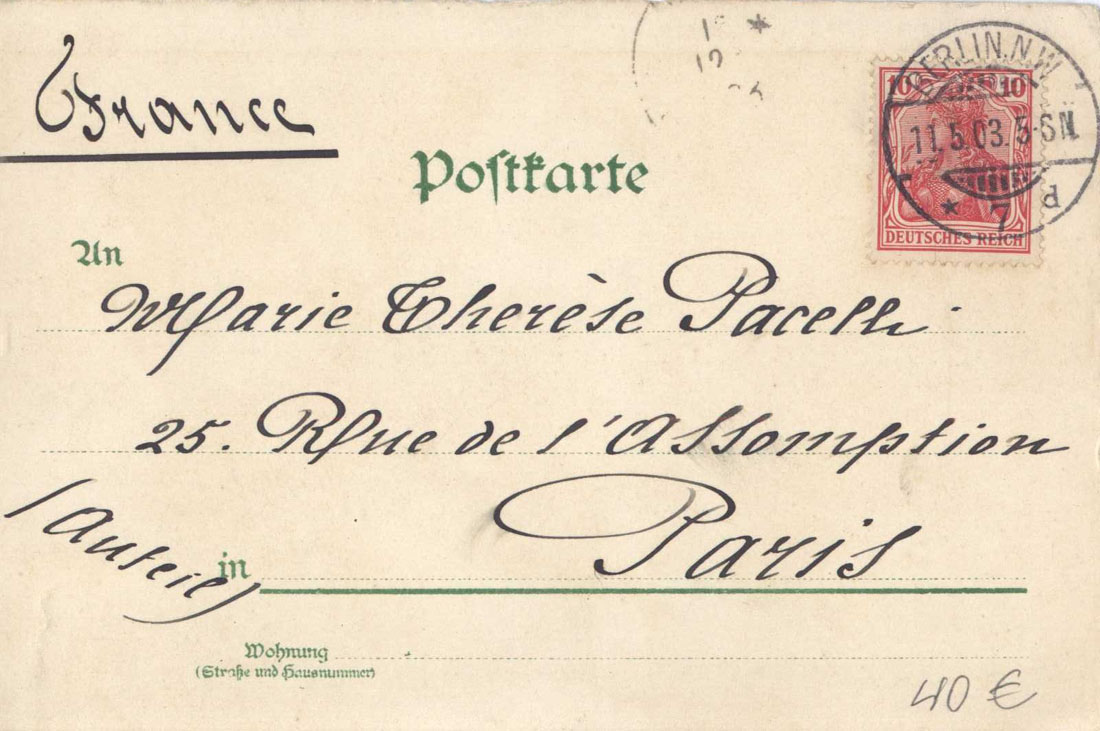 France
Postkarte
BERLIN.N.W.
11.5.03.5-6N.
* 7 d
10 10
DEUTSCHES REICH
An
Marie Therèse Pacelli
25. Rue de l'Assomption
(Auteil)
in Paris
Wohnung
(Straße und Hausnummer)
40 €